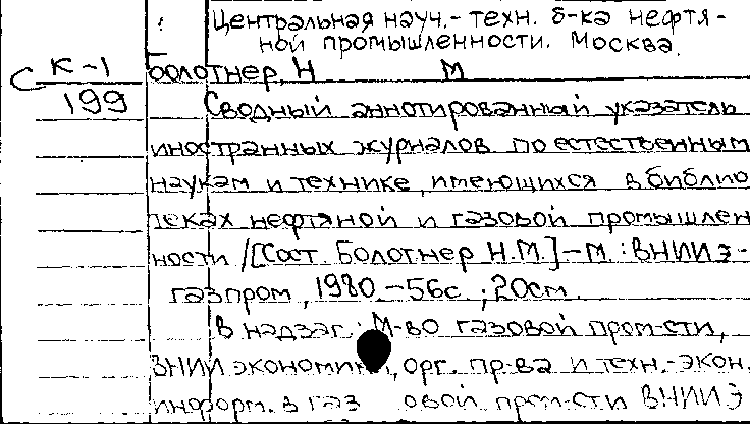 Центральная науч.- техн. б-ка нефтя-
ной промышленности. Москва.
С К-1 Болотнер, Н М
199 Сводный аннотированный указатель
иностранных журналов по естественным
наукам и технике, имеющихся в библио
теках нефтяной и газовой промышлен
ности /[Сост. Болотнер Н.М.]-М.:ВНИИЭ-
газпром, 1980.-56с.; 20см.
В надзаг.: М-во газовой пром-сти,
ВНИИ экономики, орг. пр-ва и техн.-экон.
информ. в газ овой пром-сти ВНИИЭ